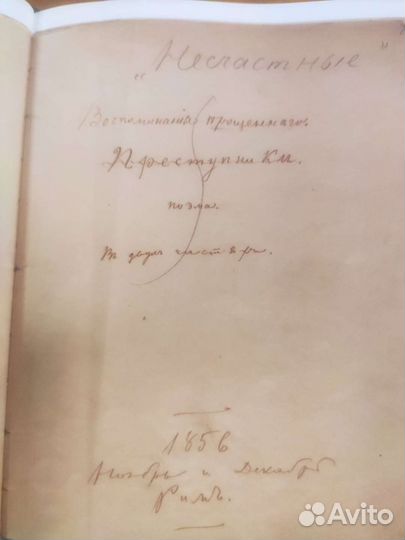 „Несчастные"
Воспоминанія прощеннаго.
Преступники.
поэма.
Въ двухъ частяхъ.
1856
Ноябрь и Декабрь
Римъ.
Avito